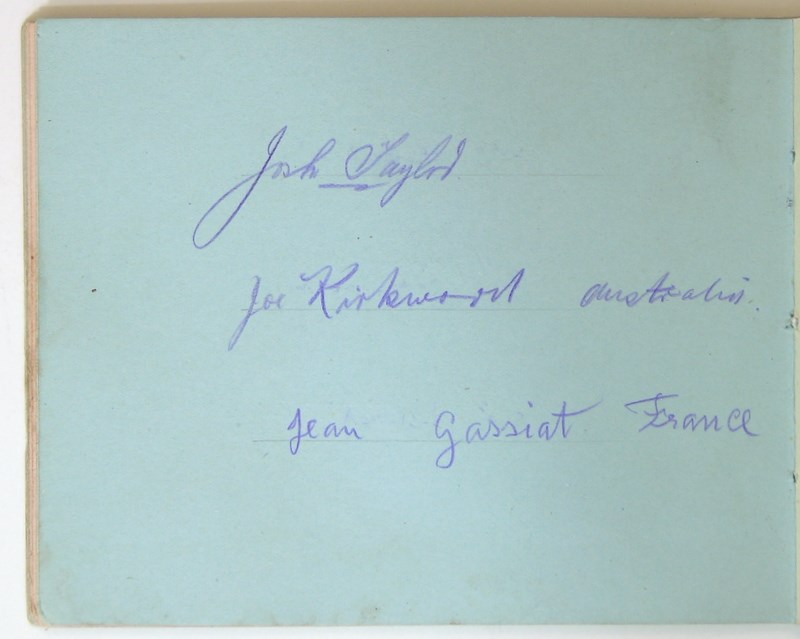 Josh Taylor
Joe Kirkwood Australia.
Jean Gassiat France